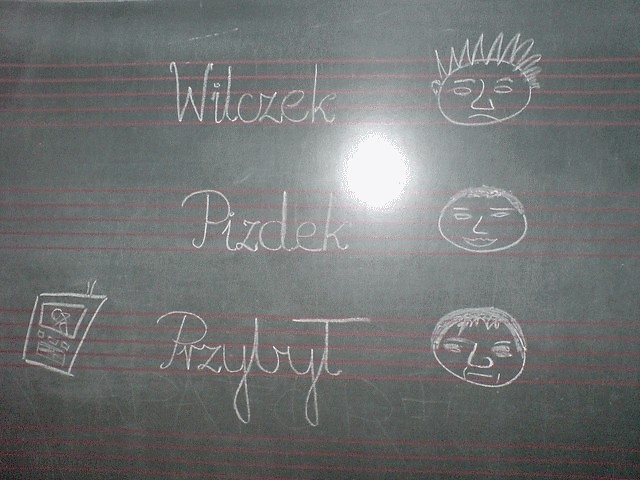 Wilczek
Pizdek
Przybył